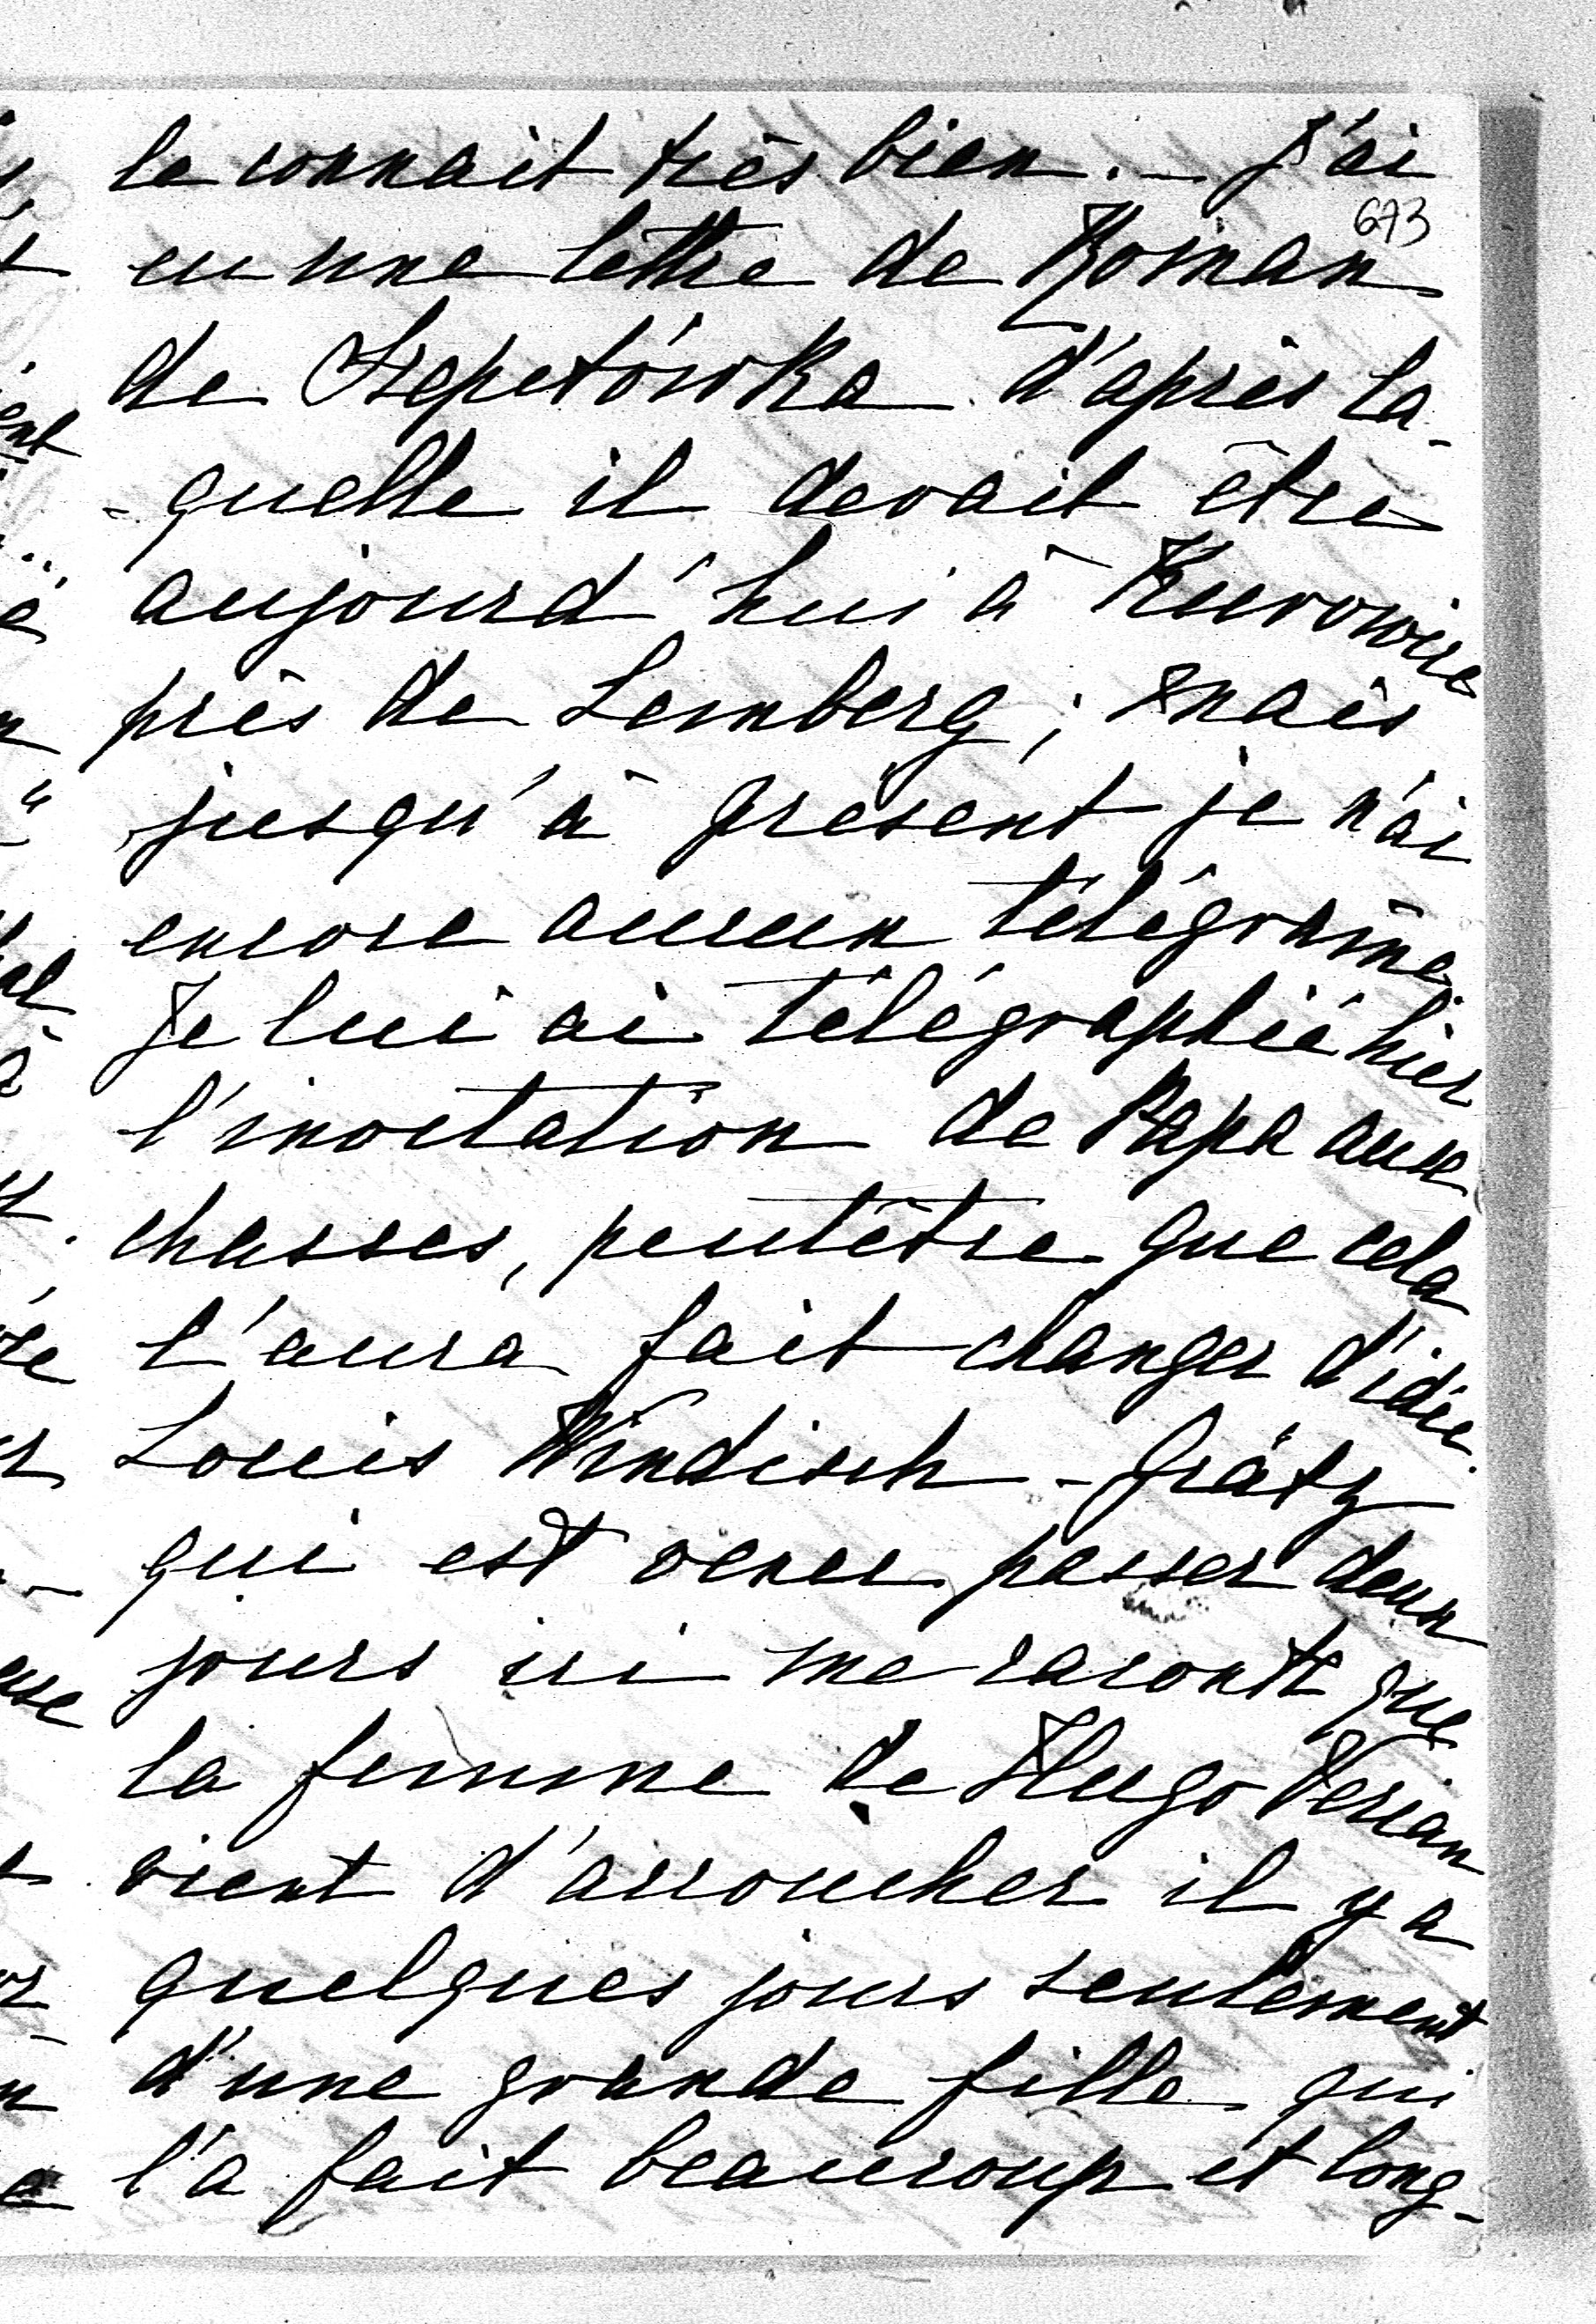 le connait très bien. – J'ai
673
eu une lettre de Roman
de Szepetówka d'après la-
-quelle il devait être
aujourd'hui à Kurowice
près de Lemberg; mais
jusqu'à présent je n'ai
encore aucun télégramme.
Je lui ai télégraphié hier
l'invitation de Papa aux
chasses, peutêtre que cela
l'aura fait changer d'idée.
Louis Windisch-Grätz
qui est venu passer deux
jours ici me raconte que
la femme de Hugo Verian
vient d'accoucher il y a
quelques jours seulement
d'une grande fille qui
l'a fait beaucoup et long-